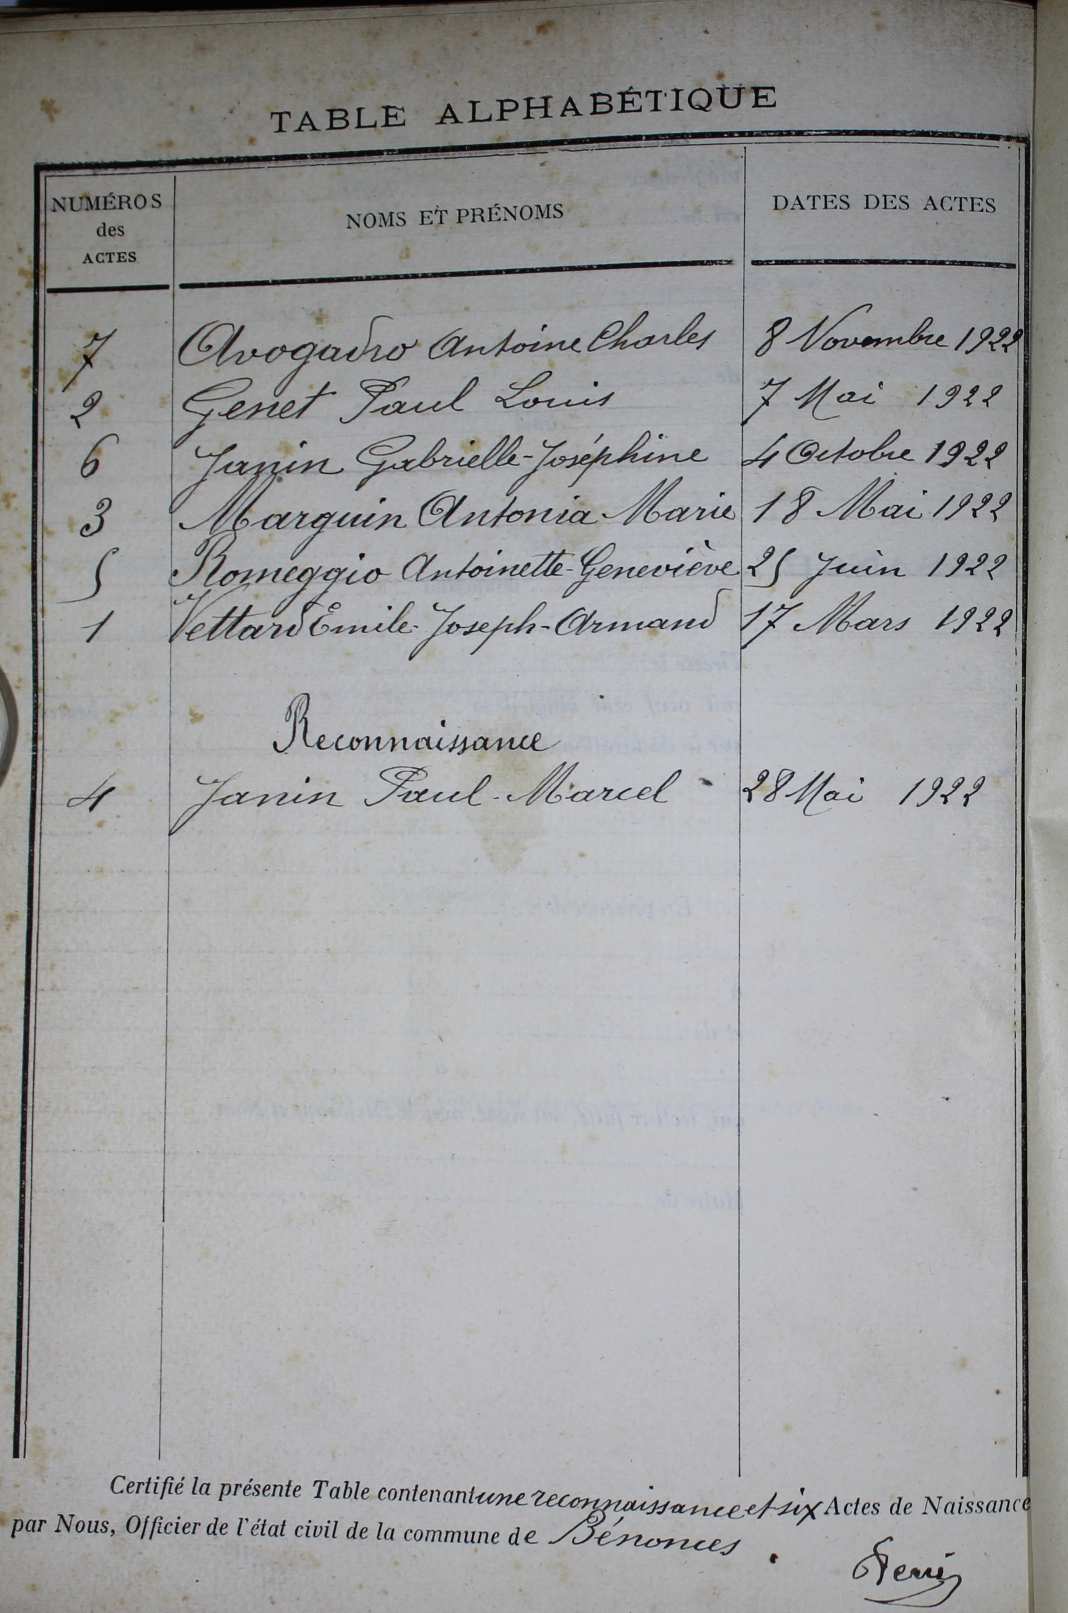 TABLE ALPHABÉTIQUE
NUMÉROS des ACTES NOMS ET PRÉNOMS DATES DES ACTES
7 Avogadro Antoine Charles 8 Novembre 1922
2 Genet Paul Louis 7 Mai 1922
6 Janin Gabrielle-Joséphine 4 Octobre 1922
3 Marguin Antonia Marie 18 Mai 1922
5 Romeggio Antoinette-Geneviève 25 Juin 1922
1 Vettard Emile-Joseph-Armand 17 Mars 1922
Reconnaissance
4 Janin Paul-Marcel 28 Mai 1922
Certifié la présente Table contenant une reconnaissance et six Actes de Naissance
par Nous, Officier de l'état civil de la commune de Bénonces